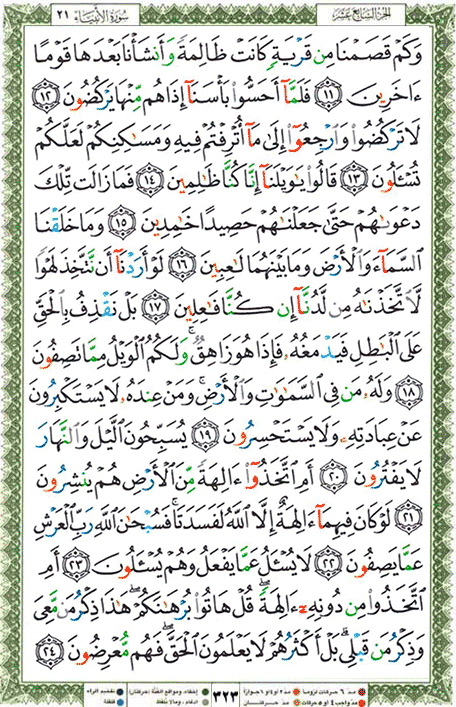 سُورَةُ الأَنبِيَاء ٢١ الجُزءُ السَّابِع عَشَر
وَكَمْ قَصَمْنَا مِن قَرْيَةٍ كَانَتْ ظَالِمَةً وَأَنشَأْنَا بَعْدَهَا قَوْمًا
ءَاخَرِينَ ۝١١ فَلَمَّآ أَحَسُّوا۟ بَأْسَنَآ إِذَا هُم مِّنْهَا يَرْكُضُونَ ۝١٢
لَا تَرْكُضُوا۟ وَٱرْجِعُوٓا۟ إِلَىٰ مَآ أُتْرِفْتُمْ فِيهِ وَمَسَٰكِنِكُمْ لَعَلَّكُمْ
تُسْـَٔلُونَ ۝١٣ قَالُوا۟ يَٰوَيْلَنَآ إِنَّا كُنَّا ظَٰلِمِينَ ۝١٤ فَمَا زَالَت تِّلْكَ
دَعْوَىٰهُمْ حَتَّىٰ جَعَلْنَٰهُمْ حَصِيدًا خَٰمِدِينَ ۝١٥ وَمَا خَلَقْنَا
ٱلسَّمَآءَ وَٱلْأَرْضَ وَمَا بَيْنَهُمَا لَٰعِبِينَ ۝١٦ لَوْ أَرَدْنَآ أَن نَّتَّخِذَ لَهْوًا
لَّٱتَّخَذْنَٰهُ مِن لَّدُنَّآ إِن كُنَّا فَٰعِلِينَ ۝١٧ بَلْ نَقْذِفُ بِٱلْحَقِّ
عَلَى ٱلْبَٰطِلِ فَيَدْمَغُهُۥ فَإِذَا هُوَ زَاهِقٌ ۚ وَلَكُمُ ٱلْوَيْلُ مِمَّا تَصِفُونَ
۝١٨ وَلَهُۥ مَن فِى ٱلسَّمَٰوَٰتِ وَٱلْأَرْضِ ۚ وَمَنْ عِندَهُۥ لَا يَسْتَكْبِرُونَ
عَنْ عِبَادَتِهِۦ وَلَا يَسْتَحْسِرُونَ ۝١٩ يُسَبِّحُونَ ٱلَّيْلَ وَٱلنَّهَارَ
لَا يَفْتُرُونَ ۝٢٠ أَمِ ٱتَّخَذُوٓا۟ ءَالِهَةً مِّنَ ٱلْأَرْضِ هُمْ يُنشِرُونَ
۝٢١ لَوْ كَانَ فِيهِمَآ ءَالِهَةٌ إِلَّا ٱللَّهُ لَفَسَدَتَا ۚ فَسُبْحَٰنَ ٱللَّهِ رَبِّ ٱلْعَرْشِ
عَمَّا يَصِفُونَ ۝٢٢ لَا يُسْـَٔلُ عَمَّا يَفْعَلُ وَهُمْ يُسْـَٔلُونَ ۝٢٣ أَمِ
ٱتَّخَذُوا۟ مِن دُونِهِۦٓ ءَالِهَةً ۖ قُلْ هَاتُوا۟ بُرْهَٰنَكُمْ ۖ هَٰذَا ذِكْرُ مَن مَّعِىَ
وَذِكْرُ مَن قَبْلِى ۗ بَلْ أَكْثَرُهُمْ لَا يَعْلَمُونَ ٱلْحَقَّ ۖ فَهُم مُّعْرِضُونَ ۝٢٤
مد ٦ حركات لزوماً مد ٢ أو ٤ أو ٦ جوازاً
مد واجب ٤ أو ٥ حركات مد حركتان
٣٢٣
إخفاء، ومواقع الغنة (حركتان) تفخيم الراء
ادغام، وما لا يلفظ قلقلة